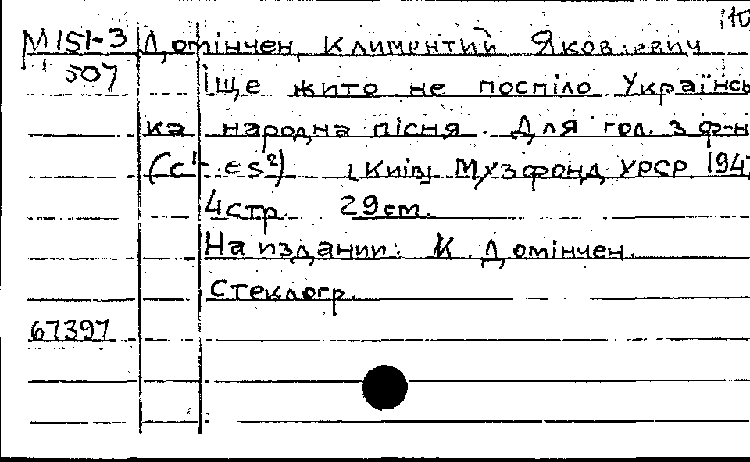 10
М 151-3 Домінчен, Климентий Яковлевич
307 Іще жито не поспіло Українсь
ка народна пісня. Для гол. з ф-н
(c¹-es²) [Київ] Музфонд УРСР 194
4 стр. 29 cm.
На издании: К. Домінчен.
Стеклогр.
67397